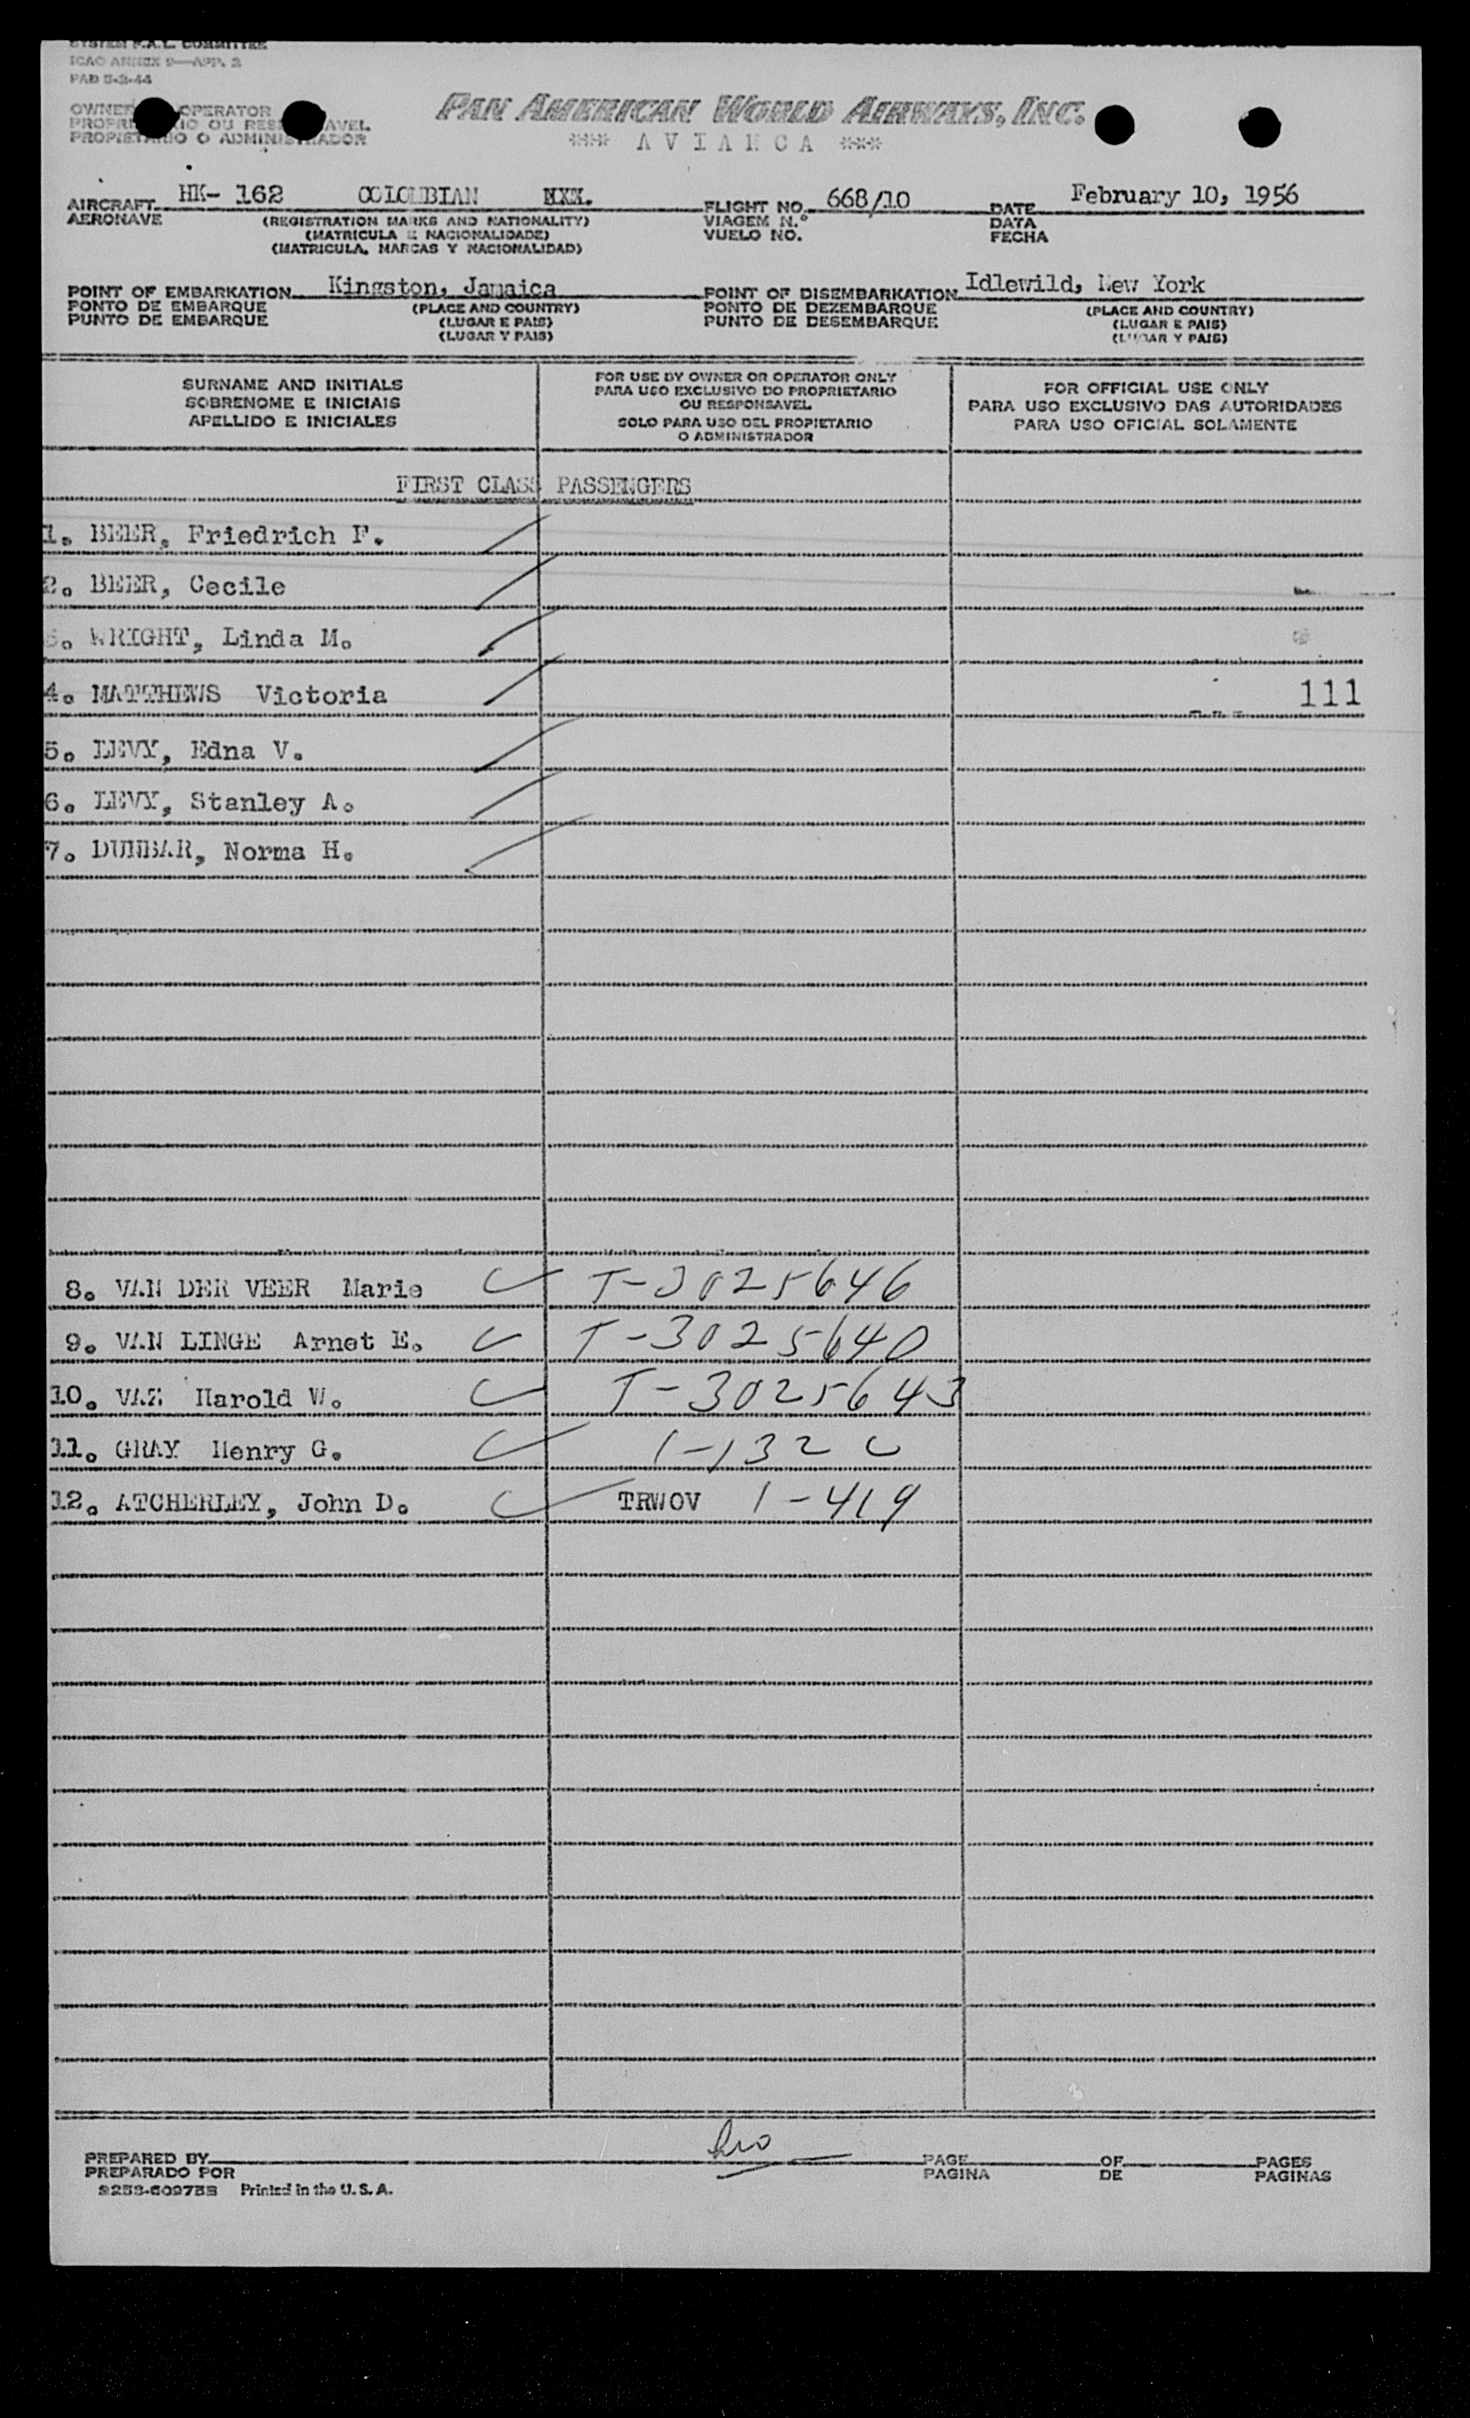 SYSTEM F.A.L. COMMITTEE
ICAO ANNEX 9—APP. 2
PAD 5-2-44
OWNER OPERATOR
OU
O ADMINISTRADOR
PAN AMERICAN WORLD AIRWAYS, INC.
*** AVIANCA ***
AIRCRAFT HK- 162 COLOMBIAN NXX. FLIGHT NO. 668/10 DATE February 10, 1956
AERONAVE (REGISTRATION MARKS AND NATIONALITY) VIAGEM N.° DATA
(MATRICULA E NACIONALIDADE) VUELO NO. FECHA
(MATRICULA, MARCAS Y NACIONALIDAD)
POINT OF EMBARKATION Kingston, Jamaica POINT OF DISEMBARKATION Idlewild, New York
PONTO DE EMBARQUE (PLACE AND COUNTRY) PONTO DE DEZEMBARQUE (PLACE AND COUNTRY)
PUNTO DE EMBARQUE (LUGAR E PAIS) PUNTO DE DESEMBARQUE (LUGAR E PAIS)
(LUGAR Y PAIS) (LUGAR Y PAIS)
SURNAME AND INITIALS
SOBRENOME E INICIAIS
APELLIDO E INICIALES
FOR USE BY OWNER OR OPERATOR ONLY
PARA USO EXCLUSIVO DO PROPRIETARIO
OU RESPONSAVEL
SOLO PARA USO DEL PROPIETARIO
O ADMINISTRADOR
FOR OFFICIAL USE ONLY
PARA USO EXCLUSIVO DAS AUTORIDADES
PARA USO OFICIAL SOLAMENTE
FIRST CLASS PASSENGERS
1. BEER, Friedrich F.
2. BEER, Cecile
3. WRIGHT, Linda M.
4. MATTHEWS Victoria 111
5. LEVY, Edna V.
6. LEVY, Stanley A.
7. DUNBAR, Norma H.
8. VAN DER VEER Marie T-3025646
9. VAN LINGE Arnet E. T-3025640
10. VAZ Harold W. T-3025643
11. GRAY Henry G.
12. ATCHERLEY, John D. TRWOV 1-419
PREPARED BY PAGE OF PAGES
PREPARADO POR PAGINA DE PAGINAS
Printed in the U.S.A.